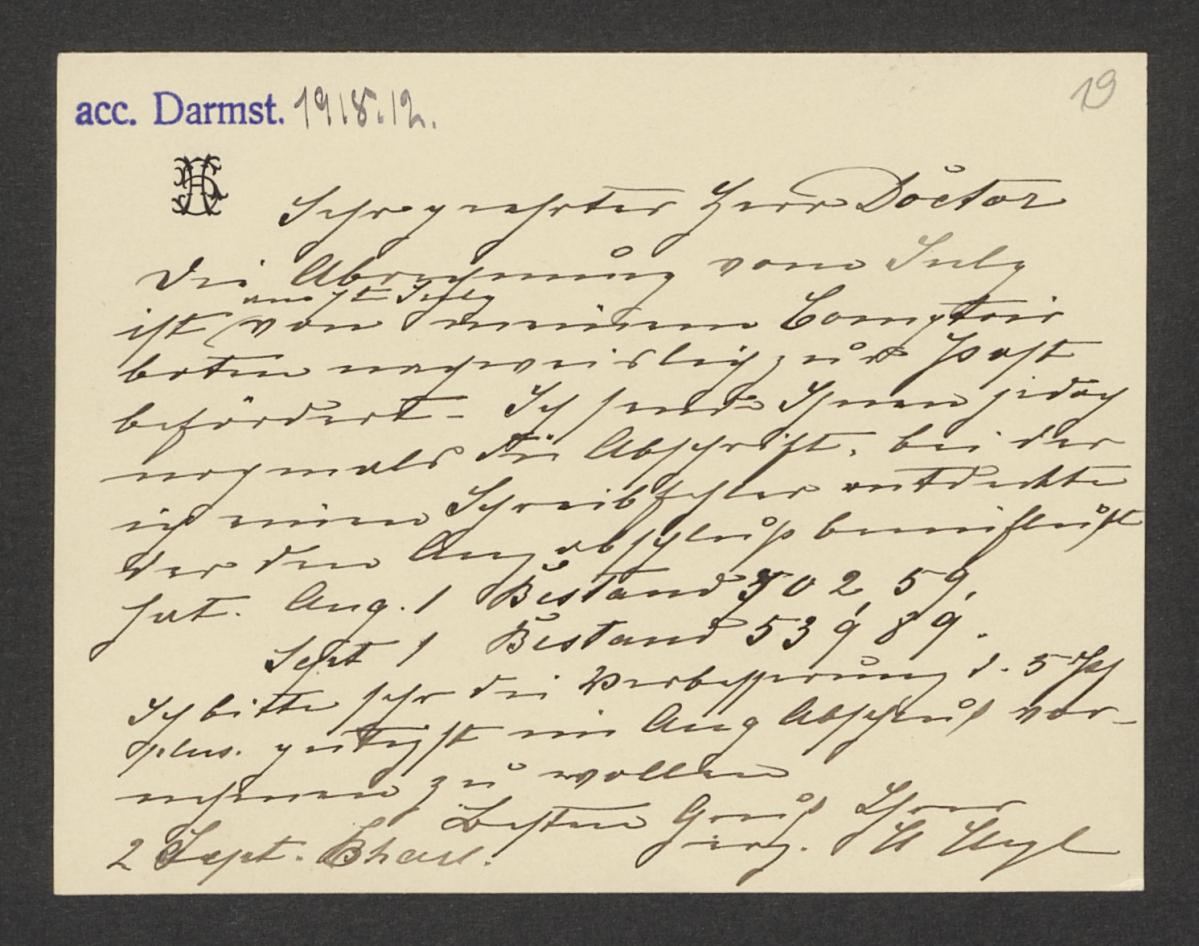 acc. Darmst. 1918.12.
19
Sehr geehrter Herr Doctor
Die Abrechnung vom July
ist von meinem Comptoir
boten nachweislich zur Post
befördert. Ich sende Ihnen jedoch
nochmals die Abschrift, bei der
ich einen Schreibfehler entdeckte
der den Aug abschluß beeinflußt
hat. Aug. 1 Bestand 302,59,
Sept 1 Bestand 539,89.
Ich bitte sehr die Verbesserung d. 5 Pf
plus. gütigst im Aug Abschluß vor-
nehmen zu wollen
Besten Gruß Ihrer
2 Sept. Charl.